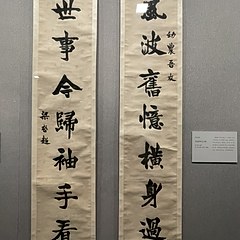 幼農吾友
風波舊憶橫身過
世事今歸袖手看
梁啓超